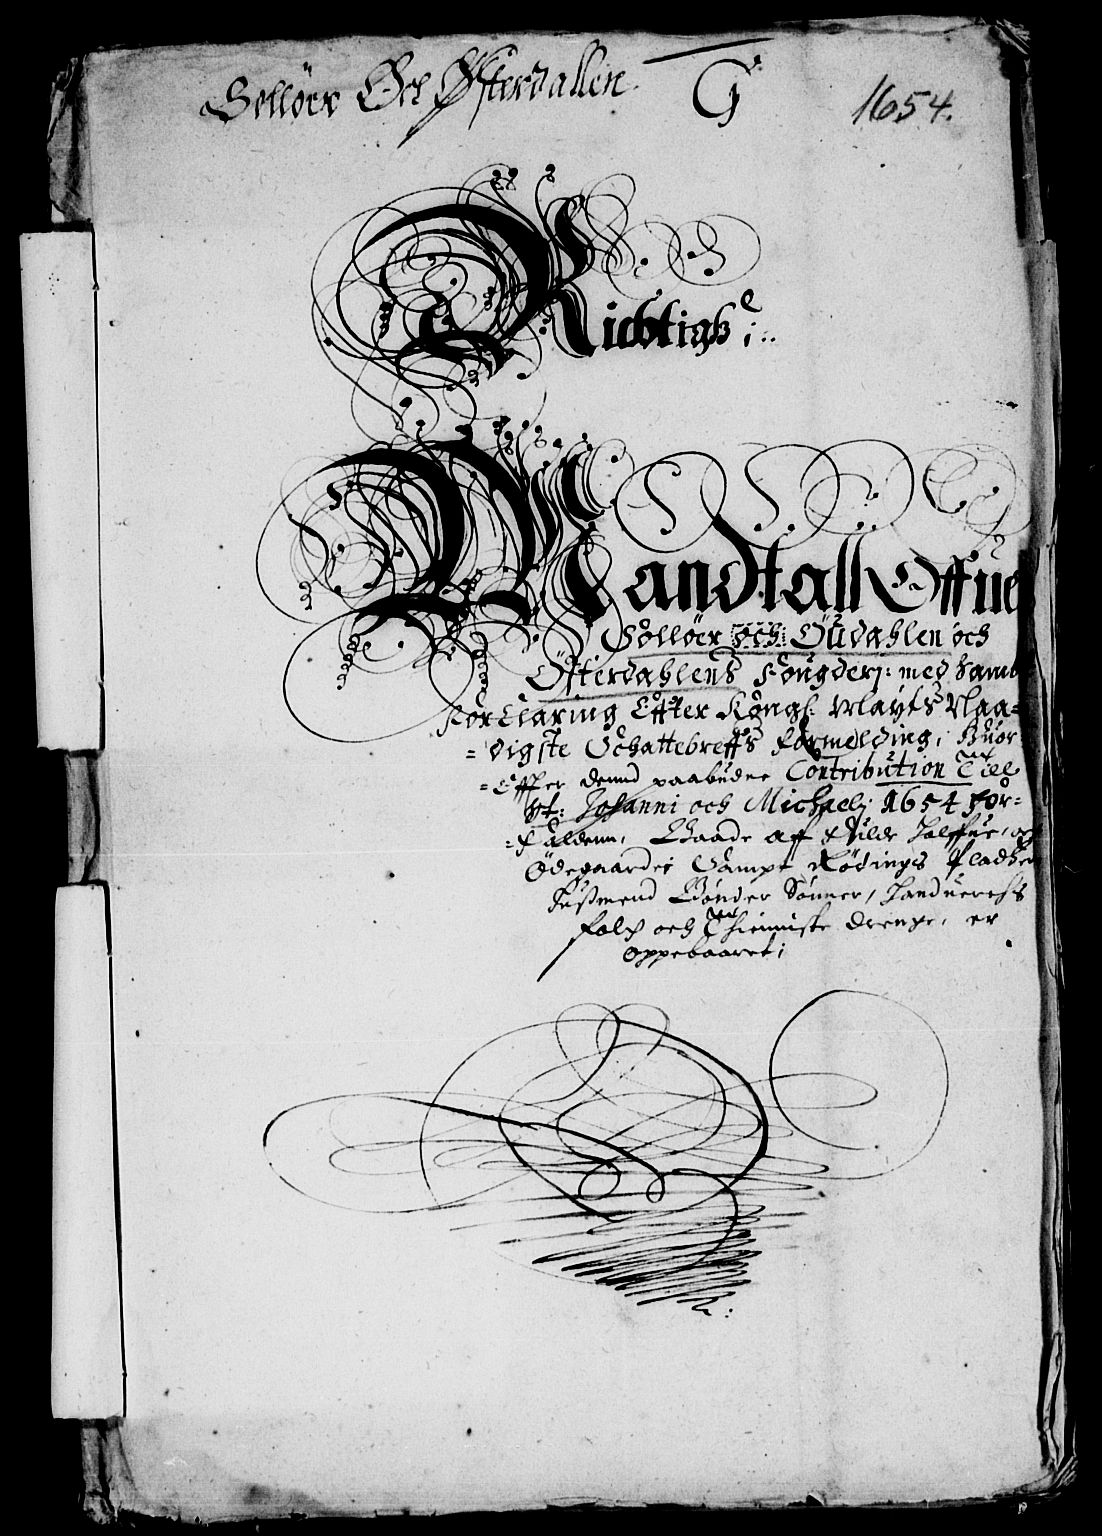 Solløer Och Østerdallen. G 1654.
Richtigh e
Mandtall Offue
Solløer och Oüdahlen och
Østerdahlens Fougderj: med samb
forClaring Effter Kongl: Maÿts Naa=
=digste Schattebreffs formelding, Huor
=Effter dend paabudne Contribution Till
St: Johanni och Michaelj 1654 for=
=falden, Baade aff fulde halffue, och
Ødegaarder Sampt Rødings Pladtzer
Huszmend Bønder Sønner, Handuerchs
folch och Thienniste drenge, er
oppebaaret;